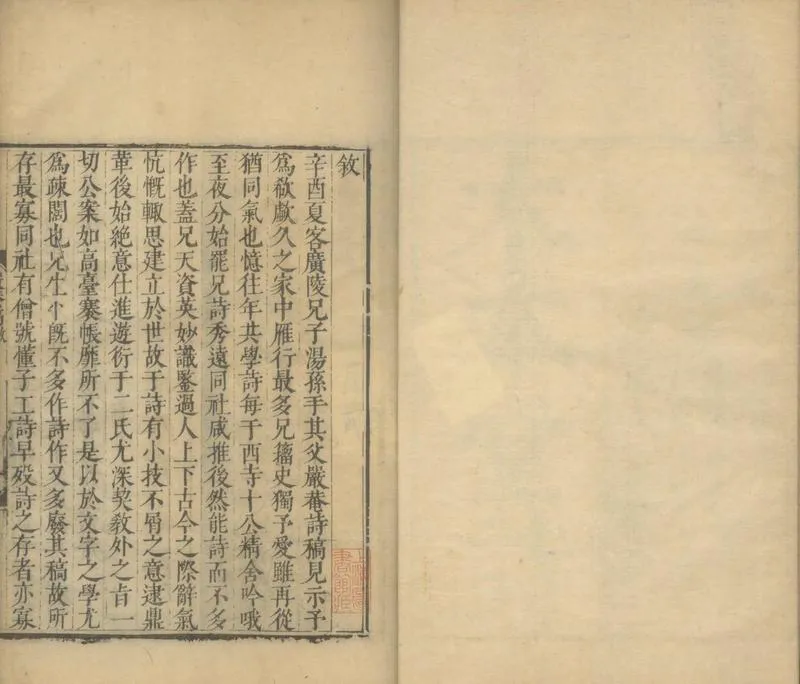 敘
辛酉夏客廣陵兄子湯孫手其父嚴菴詩稿見示予
爲欷歔久之家中雁行最多兄籀史獨予愛雖再從
猶同氣也憶往年共學詩每于西寺十公精舍吟哦
至夜分始罷兄詩秀遠同社咸推後然能詩而不多
作也蓋兄天資英妙識鑒過人上下古今之際辭氣
忼慨輙思建立於世故于詩有小技不屑之意逮鼎
革後始絶意仕進遊衍于二氏尤深契敎外之旨一
切公案如高臺褰帳靡所不了是以於文字之學尤
爲疎闊也兄生平旣不多作詩作又多廢其稿故所
存最寡同社有僧號懂子工詩早歿詩之存者亦寡